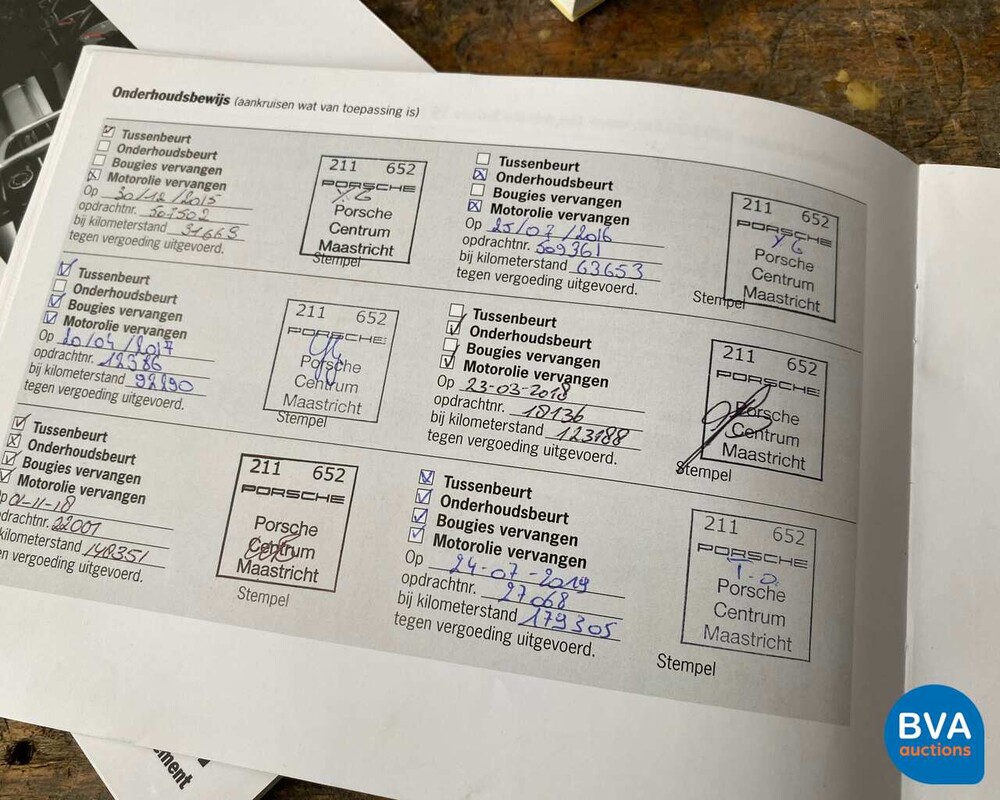 Onderhoudsbewijs (aankruisen wat van toepassing is)
Tussenbeurt
Onderhoudsbeurt
Bougies vervangen
Motorolie vervangen
Op 30/12/2015
opdrachtnr. 307502
bij kilometerstand 31665
tegen vergoeding uitgevoerd.
211 652
PORSCHE
Porsche
Centrum
Maastricht
Stempel
Tussenbeurt
Onderhoudsbeurt
Bougies vervangen
Motorolie vervangen
Op 25/07/2016
opdrachtnr. 309361
bij kilometerstand 63653
tegen vergoeding uitgevoerd.
211 652
PORSCHE
YG
Porsche
Centrum
Maastricht
Stempel
Tussenbeurt
Onderhoudsbeurt
Bougies vervangen
Motorolie vervangen
Op 20/04/2017
opdrachtnr. 12386
bij kilometerstand 92290
tegen vergoeding uitgevoerd.
211 652
PORSCHE
Porsche
Centrum
Maastricht
Stempel
Tussenbeurt
Onderhoudsbeurt
Bougies vervangen
Motorolie vervangen
Op 23-03-2018
opdrachtnr. 18136
bij kilometerstand 123188
tegen vergoeding uitgevoerd.
211 652
PORSCHE
Porsche
Centrum
Maastricht
Stempel
Tussenbeurt
Onderhoudsbeurt
Bougies vervangen
Motorolie vervangen
p 01-11-18
drachtnr. 22001
kilometerstand 148351
en vergoeding uitgevoerd.
211 652
PORSCHE
Porsche
Centrum
Maastricht
Stempel
Tussenbeurt
Onderhoudsbeurt
Bougies vervangen
Motorolie vervangen
Op 24-07-2019
opdrachtnr. 27068
bij kilometerstand 179305
tegen vergoeding uitgevoerd.
211 652
PORSCHE
T-D.
Porsche
Centrum
Maastricht
Stempel
ement
BVA
auctions